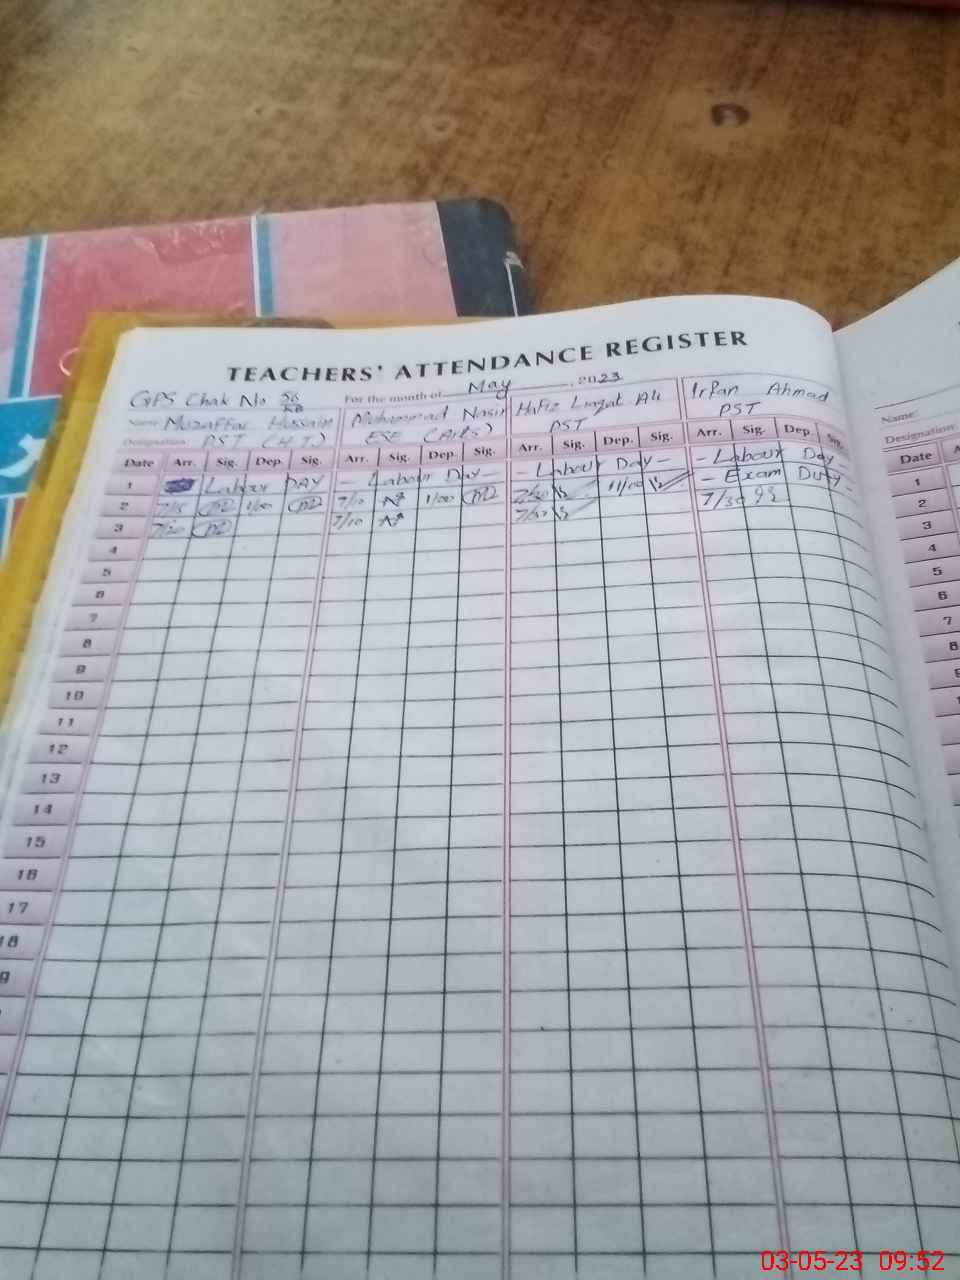 TEACHERS' ATTENDANCE REGISTER
GPS Chak No 56/KB For the month of May, 2023
Name Muzaffar Hussain Muhammad Nasir Hafiz Liaqat Ali Irfan Ahmad Name
Designation PST (H.T) ESE (Arts) PST PST Designation
Date Arr. Sig. Dep. Sig. Arr. Sig. Dep. Sig. Arr. Sig. Dep. Sig. Arr. Sig. Dep. Sig. Date
1 Labour DAY - Labour Day - - Labour Day - - Labour Day - 1
2 7/15 1/00 7/10 1/00 7/30 11/00 - Exam Duty - 2
3 7/20 7/10 7/30 7/30 3
4 4
5 5
6 6
7 7
8 8
9
10
11
12
13
14
15
16
17
18
9
03-05-23 09:52